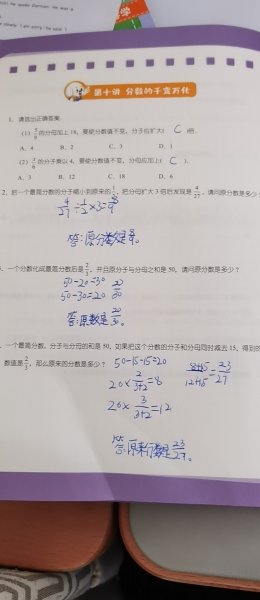 学
第十讲 分数的千变万化
1、请选出正确答案.
的分母加上18，要使分数值不变，分子应扩大( C )倍.
A、4 B、2 C、3 D、1
的分子乘以4，要使分数值不变，分母应加上( C ).
A、3 B、12 C、18 D、6
2、把一个最简分数的分子缩小到原来的1/2，把分母扩大3倍后发现是4/27，请问原分数是多少
4/27 ÷ 1/2 × 3 = 8/9
答:原分数是8/9.
、一个分数化成最简分数后是2/3，并且原分子与分母之和是50，请问原分数是多少？
50-20=30 20/30
50-30=20
答:原数是20/30.
、一个最简分数，分子与分母的和是50，如果把这个分数的分子和分母同时减去15，得到的
数值是2/3，那么原来的分数是多少？ 50-15-15=20
8+15/12+15=23/27
20×2/3+2=8
20×3/3+2=12
答:原来分数是23/27.